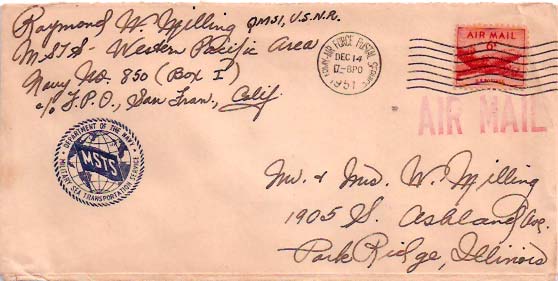 Raymond W. Milling QMS1, U.S.N.R.
MSTS - Western Pacific Area
Navy No. 850 (Box I)
c/o F.P.O., San Fran., Calif.
ARMY-AIR FORCE POSTAL SERVICE
DEC 14
1951
AIR MAIL
6¢
AIR MAIL
DEPARTMENT OF THE NAVY
MSTS
MILITARY SEA TRANSPORTATION SERVICE
Mr. & Mrs. W. Milling
1905 S. Ashland Ave.
Park Ridge, Illinois